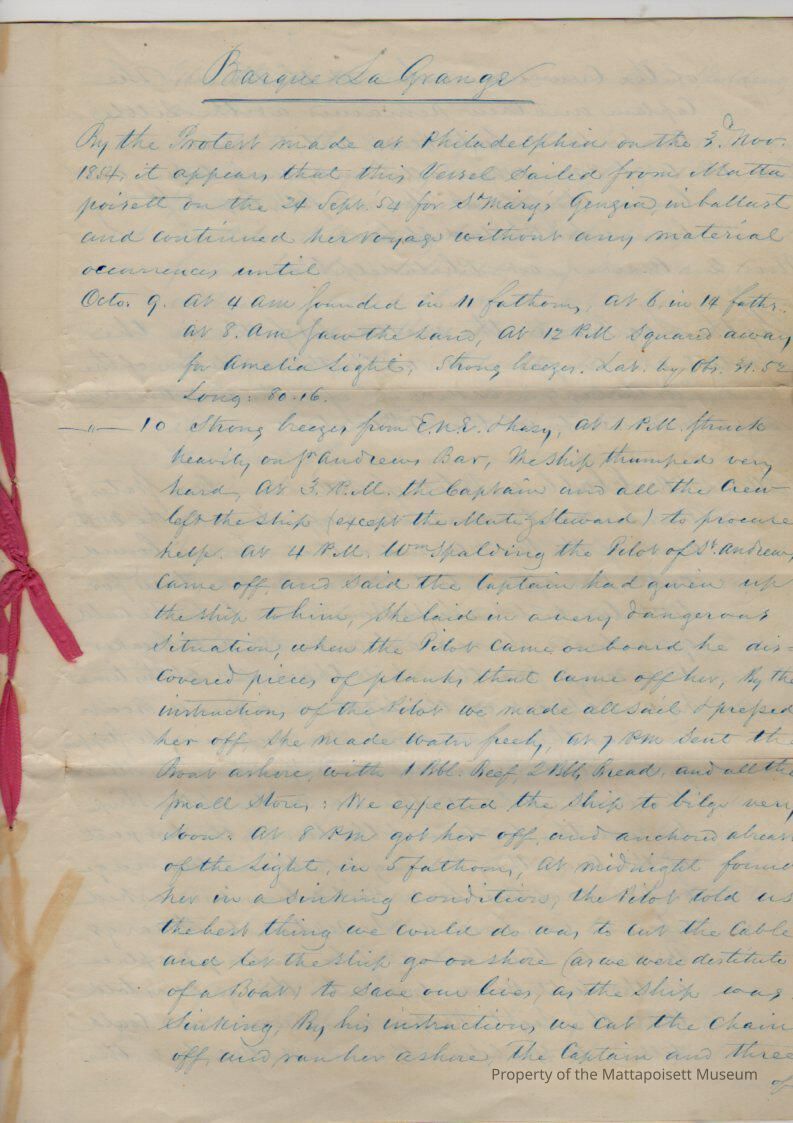 Barque La Grange
By the Protest made at Philadelphia on the 3d. Nov.
1854, it appears that this Vessel sailed from Matta
poisett on the 24 Sept. 54 for St Mary's Georgia, in ballast
and continued her voyage without any material
occurrences until
Octo. 9. At 4 AM sounded in 11 fathoms, at 6 in 14 faths.
at 8. AM saw the Land, At 12 PM squared away
for Amelia Light, Strong breezes. Lat. by Obs. 31.52
Long: 80.16.
—"— 10 Strong breezes from E.N.E. & hazy, At 1 P.M. struck
heavily on St Andrews Bar, the ship thumped very
hard, At 3. P.M. the Captain and all the Crew
left the ship (except the Mate & Steward) to procure
help. At 4 P.M. Wm Spalding the Pilot of St. Andrews,
Came off and said the Captain had given up
the ship to him, she laid in a very dangerous
situation, when the Pilot came on board he dis=
covered pieces of planks that came off her, By the
instructions of the Pilot we made all sail & pressed
her off she made water freely, at 7 PM sent the
Boat ashore, with 1 Bbl. Beef, 2 Bbls Bread, and all the
small stores: We expected the ship to bilge very
soon. At 8 PM got her off, and anchored abreast
of the Light, in 5 fathoms, At midnight found
her in a sinking condition, the Pilot told us
the best thing we could do was to cut the Cable
and let the ship go on shore (as we were destitute
of a Boat) to save our lives, as the ship was
sinking, By his instructions we cut the Chain
off, and ran her ashore, the Captain and three
of
Property of the Mattapoisett Museum